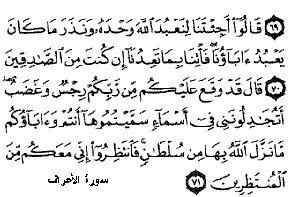 ﴿٦٩﴾ قَالُوٓا۟ أَجِئْتَنَا لِنَعْبُدَ ٱللَّهَ وَحْدَهُۥ وَنَذَرَ مَا كَانَ
يَعْبُدُ ءَابَآؤُنَا ۖ فَأْتِنَا بِمَا تَعِدُنَآ إِن كُنتَ مِنَ ٱلصَّـٰدِقِينَ
﴿٧٠﴾ قَالَ قَدْ وَقَعَ عَلَيْكُم مِّن رَّبِّكُمْ رِجْسٌ وَغَضَبٌ ۖ
أَتُجَـٰدِلُونَنِى فِىٓ أَسْمَآءٍ سَمَّيْتُمُوهَآ أَنتُمْ وَءَابَآؤُكُم
مَّا نَزَّلَ ٱللَّهُ بِهَا مِن سُلْطَـٰنٍ ۚ فَٱنتَظِرُوٓا۟ إِنِّى مَعَكُم مِّنَ
ٱلْمُنتَظِرِينَ ﴿٧١﴾ سورة الأعراف